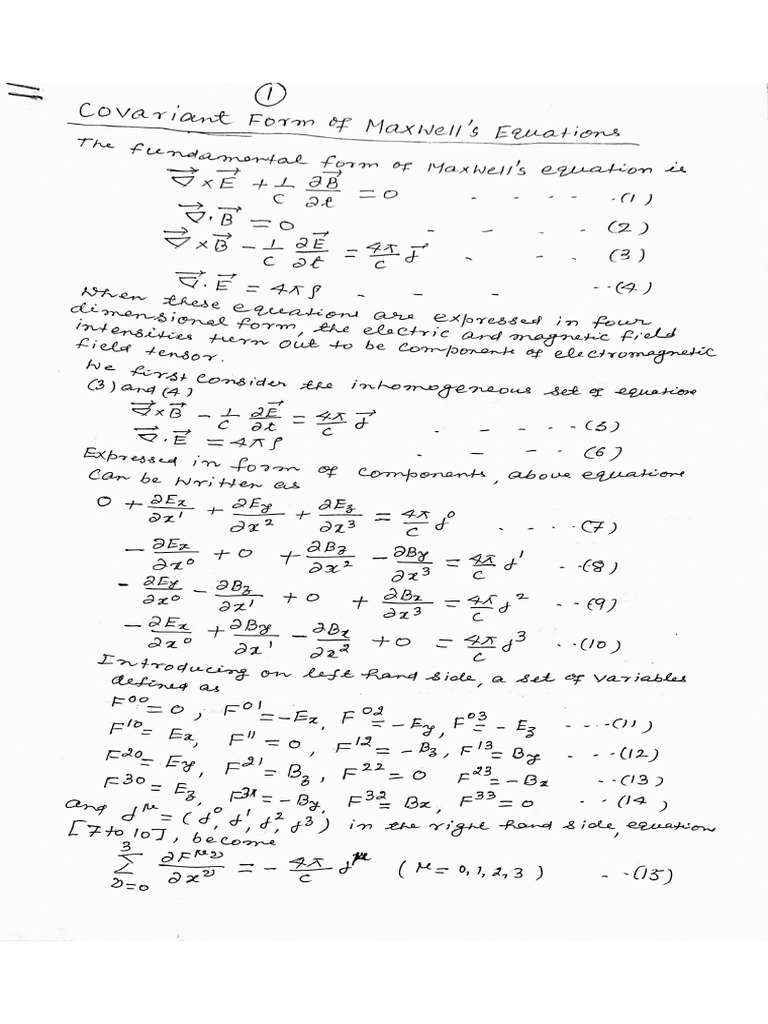 ①
Covariant Form of Maxwell's Equations
The fundamental form of Maxwell's equation is
∇⃗ × E⃗ + 1/C ∂B⃗/∂t = 0 - - - - ·(1)
∇⃗ · B⃗ = 0 - - - (2)
∇⃗ × B⃗ - 1/C ∂E⃗/∂t = 4π/C J⃗ - - - (3)
∇⃗ · E⃗ = 4πρ - - - - -(4)
When these equations are expressed in four
dimensional form, the electric and magnetic field
intensities turn out to be components of electromagnetic
field tensor.
We first consider the inhomogeneous set of equations
(3) and (4)
∇⃗ × B⃗ - 1/C ∂E⃗/∂t = 4π/C J⃗ - - - - -(5)
∇⃗ · E⃗ = 4πρ - - - - (6)
Expressed in form of components, above equations
can be written as
0 + ∂Ex/∂x¹ + ∂Ey/∂x² + ∂Ez/∂x³ = 4π/C J⁰ - - - -(7)
- ∂Ex/∂x⁰ + 0 + ∂Bz/∂x² - ∂By/∂x³ = 4π/C J¹ - -(8)
- ∂Ey/∂x⁰ - ∂Bz/∂x¹ + 0 + ∂Bx/∂x³ = 4π/C J² - -(9)
- ∂Ex/∂x⁰ + ∂By/∂x¹ - ∂Bx/∂x² + 0 = 4π/C J³ - -(10)
Introducing on left hand side, a set of variables
defined as
F⁰⁰ = 0, F⁰¹ = -Ex, F⁰² = -Ey, F⁰³ = -Ez - - -(11)
F¹⁰ = Ex, F¹¹ = 0, F¹² = -Bz, F¹³ = By - -(12)
F²⁰ = Ey, F²¹ = Bz, F²² = 0 F²³ = -Bx - -(13)
F³⁰ = Ez, F³¹ = -By, F³² = Bx, F³³ = 0 - -(14)
and J^μ = (J⁰, J¹, J², J³) in the right hand side, equation
[7 to 10], become
∑_{ν=0}^{3} ∂F^{μν}/∂x^ν = - 4π/C J^μ (μ = 0, 1, 2, 3) - -(15)